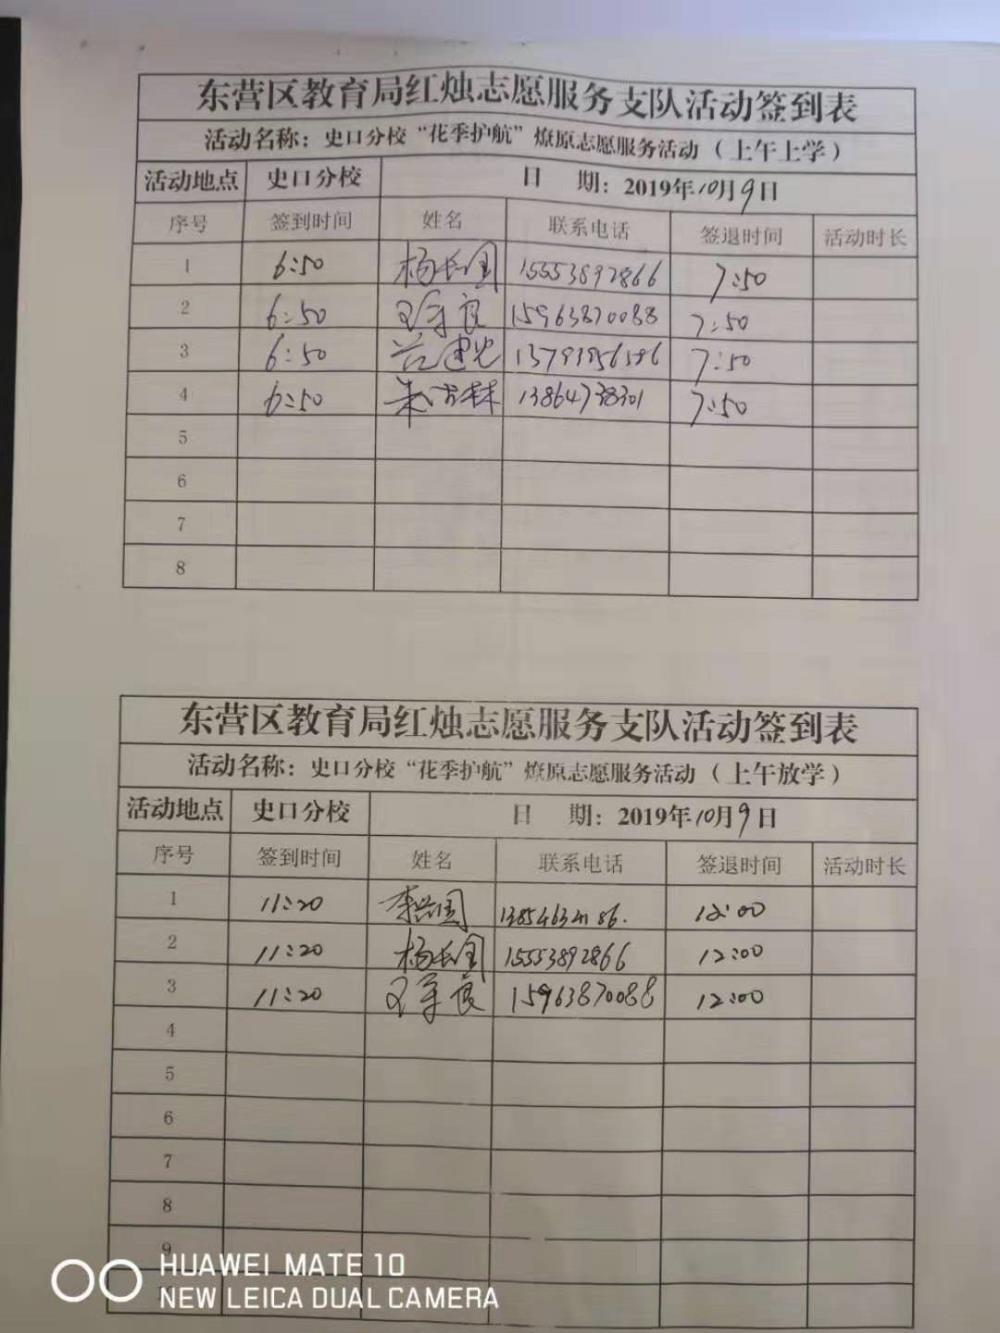 东营区教育局红烛志愿服务支队活动签到表
活动名称：史口分校“花季护航”燎原志愿服务活动（上午上学）
活动地点 史口分校 日 期：2019年10月9日
序号 签到时间 姓名 联系电话 签退时间 活动时长
1 6:50 杨长国 15553892866 7:50
2 6:50 王军良 15963870088 7:50
3 6:50 7:50
4 6:50 13864738301 7:50
5
6
7
8
东营区教育局红烛志愿服务支队活动签到表
活动名称：史口分校“花季护航”燎原志愿服务活动（上午放学）
活动地点 史口分校 日 期：2019年10月9日
序号 签到时间 姓名 联系电话 签退时间 活动时长
1 11:20 李兴国 12:00
2 11:20 杨长国 15553892866 12:00
3 11:20 王军良 15963870088 12:00
4
5
6
7
8
9
HUAWEI MATE 10
NEW LEICA DUAL CAMERA